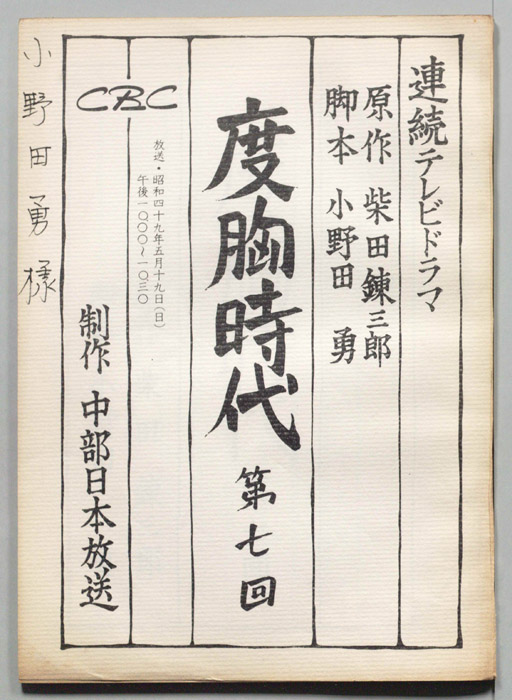 連続テレビドラマ
原作 柴田錬三郎
脚本 小野田 勇
度胸時代 第七回
放送・昭和四十九年五月十九日(日)
午後一〇〇〇〜一〇三〇
CBC
制作 中部日本放送
小野田勇様